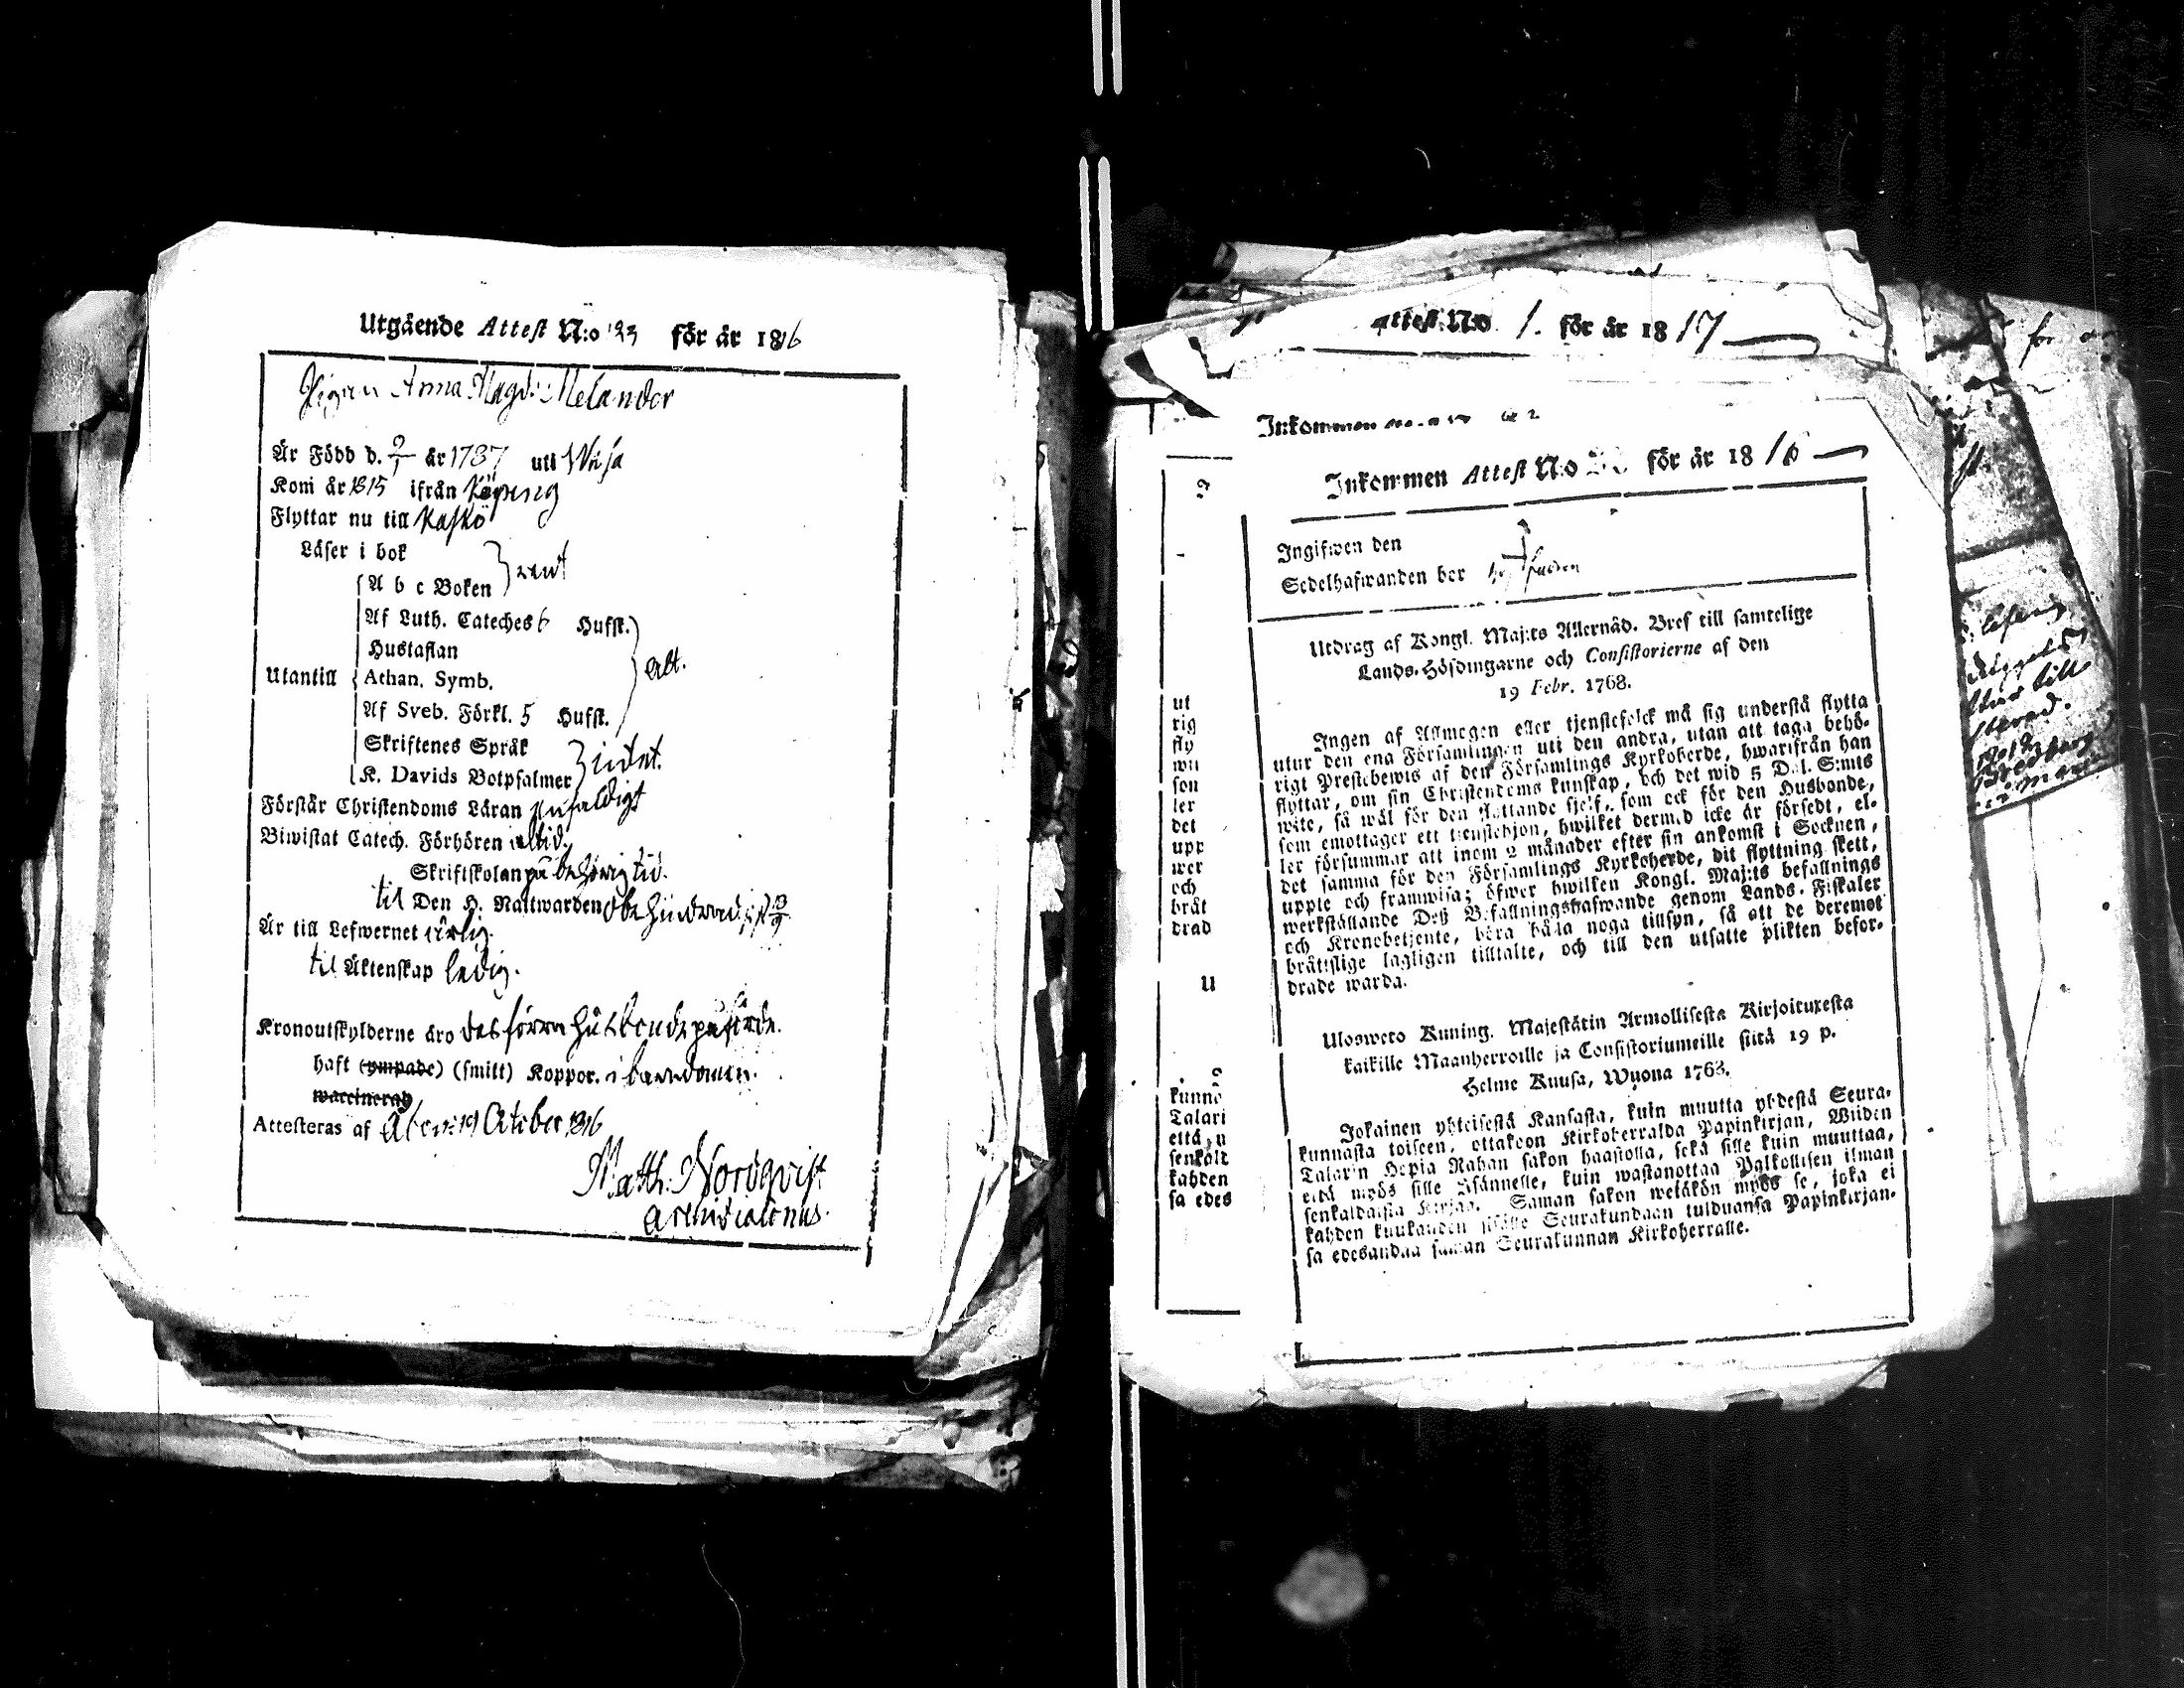 Utgående Attest N:o 133 för år 1816
Pigan Anna Magd: Melander
Är Född d. 9/1 år 1787 uti Wasa
Kom år 1815 ifrån Köping
Flyttar nu till Kaskö
Läser i bok
A b c Boken } rent
Af Luth. Cateches 6 Hufst.
Hustaflan
Utantill Athan. Symb. } Alt.
Af Sveb. Förkl. 5 Hufst.
Skriftenes Språk
K. Davids Botpsalmer } intet.
Förstår Christendoms Läran enfaldigt
Biwistat Catech. Förhören altid.
Skriftskolan på behörig tid.
til Den H. Nattwarden obehindrad
Är till Lefwernet ärlig.
til Äktenskap ledig.
Kronoutskylderne äro hos förra husbonde påförde.
haft (ympade) (smitt) Koppor. i barndomen.
waccinerad
Attesteras af Åbo 19 October 1816
Matth: Nordqvist
Archidiaconus.
Attest N:o 1. för år 1817
Inkommen
Inkommen Attest N:o för år 1816
Ingifwen den
Sedelhafwanden bor
Utdrag af Kongl. Maj:ts Allernåd. Bref till samtelige
Lands-Höfdingarne och Consistorierne af den
19 Febr. 1768.
Ingen af Allmogen eller tjenstefolck må sig understå flytta
utur den ena Församlingen uti den andra, utan att taga behö-
rigt Prestebewis af den Församlings Kyrkoherde, hwarifrån han
flyttar, om sin Christendoms kunskap, och det wid 5 Dal. S:mts
wite, så wäl för den flyttande sjelf, som ock för den Husbonde,
som emottager ett tjenstehjon, hwilket dermed icke är försedt, el-
ler försummar att inom 2 månader efter sin ankomst i Socknen,
det samma för den Församlings Kyrkoherde, dit flyttning skett,
uppte och framwisa; öfwer hwilken Kongl. Maj:ts befallnings
werkställande Deß Befallningshafwande genom Lands-Fiskaler
och Kronobetjente, böra hålla noga tillsyn, så att de deremot
bråtslige lagligen tilltalte, och till den utsatte plikten befor-
drade warda.
Uloswето Kuning. Majestätin Armollisesta Kirjoituxesta
kaikille Maanherroille ja Consistoriumeille siitä 19 p.
Helme Kuusa, Wuona 1768.
Jokainen yhteisestä Kansasta, kuin muutta yhdestä Seura-
kunnasta toiseen, ottakoon Kirkoherralda Papinkirjan, Wiiden
Talarin Hopia Rahan sakon haastolla, sekä sille kuin muuttaa,
että myös sille Isännelle, kuin wastanottaa Palkollisen ilman
senkaldaista Kirjaa. Saman sakon wetäkön myös se, joka ei
kahden kuukauden sisälle Seurakundaan tulduansa Papinkirjan-
sa edesandaa saman Seurakunnan Kirkoherralle.
ut
rig
fly
wit
som
ler
det
upp
wer
och
bråt
drad
U
kunna
Talari
että
senkalt
kahden
sa edes